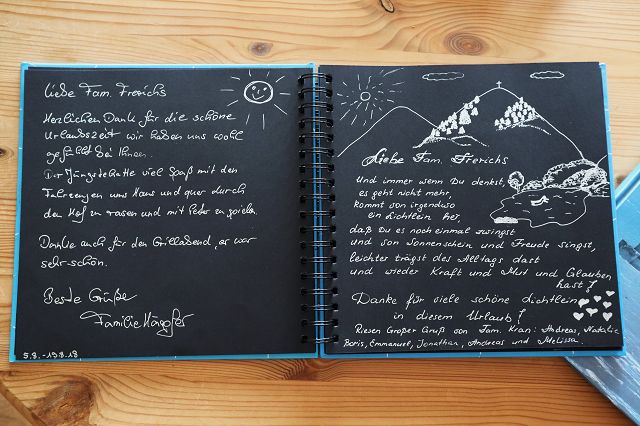 Liebe Fam. Frerichs
Herzlichen Dank für die schöne
Urlaubszeit wir haben uns wohl
gefühlt bei Ihnen.
Der Jüngste hatte viel Spaß mit den
Fahrzeugen ums Haus und quer durch
den Hof zu rasen und mit Peter zu spielen.
Danke auch für den Grillabend, es war
sehr schön.
Beste Grüße
Familie
5.8.-19.8.18
Liebe Fam. Frerichs
Und immer wenn Du denkst,
es geht nicht mehr,
kommt von irgendwo
ein Lichtlein her,
daß Du es noch einmal zwingst
und von Sonnenschein und Freude singst,
leichter trägst des Alltags
und wieder Kraft und Mut und Glauben
hast!
Danke für viele schöne Lichtlein
in diesem Urlaub!
Riesen Großer Gruß von Fam. Kran: Andreas, Natalie
Boris, Emmanuel, Jonathan, Andreas und Melissa.